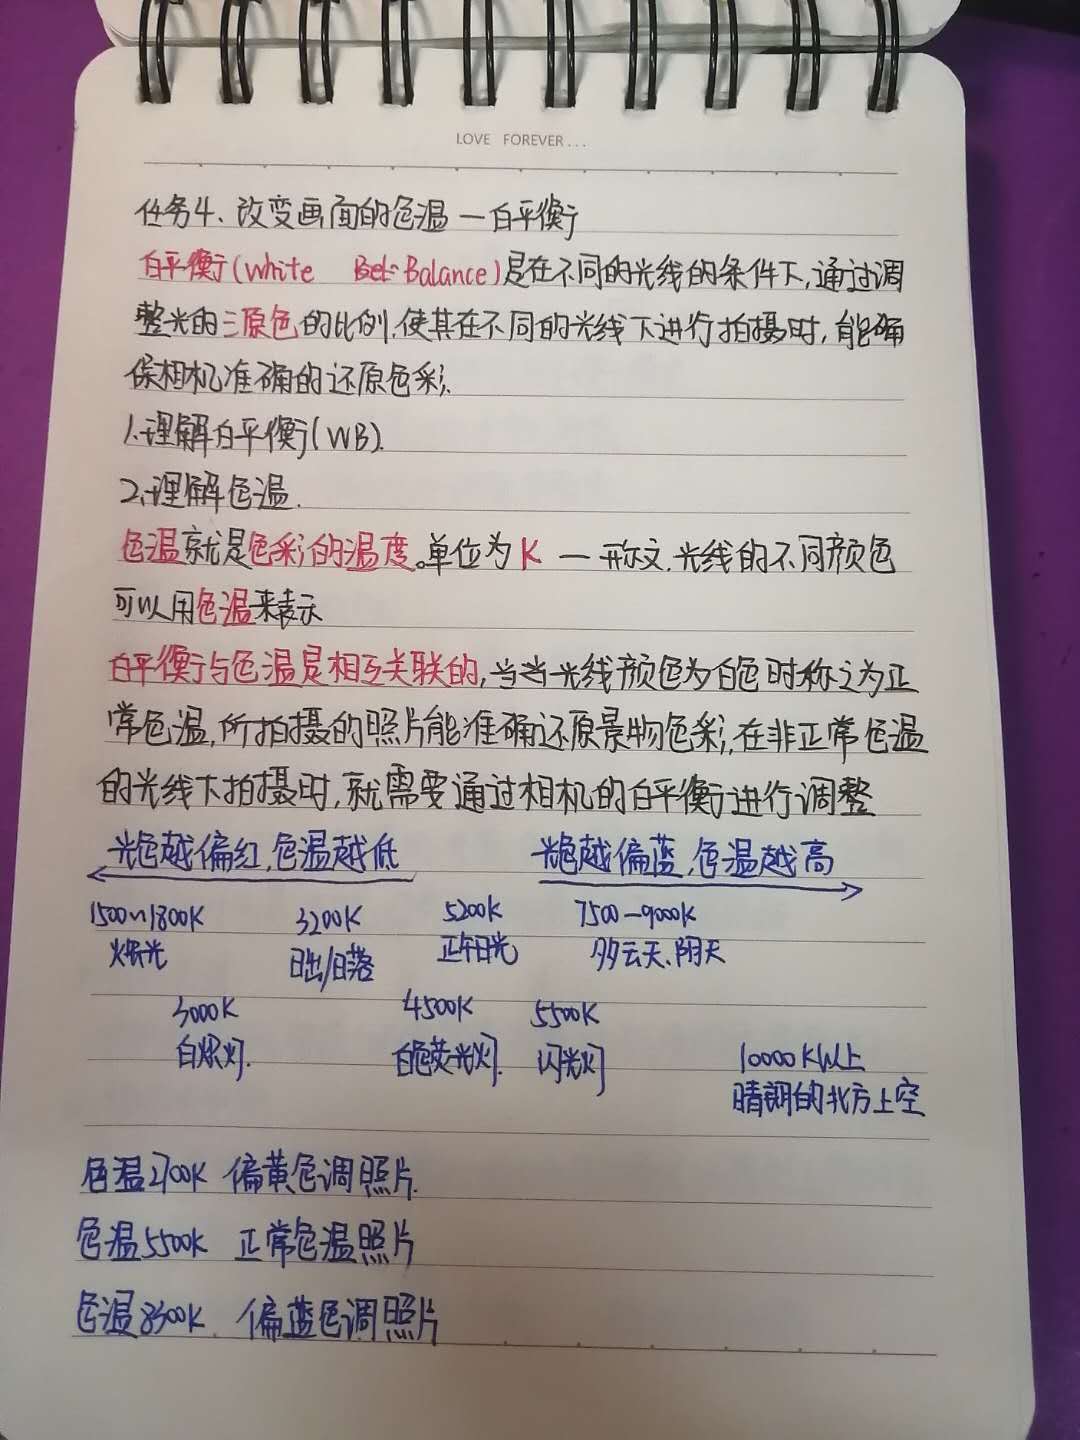 LOVE FOREVER...
任务4、改变画面的色温一白平衡
白平衡(White Balance)是在不同的光线的条件下,通过调
整光的三原色的比例,使其在不同的光线下进行拍摄时,能确
保相机准确的还原色彩.
1.理解白平衡(WB).
2.理解色温.
色温就是色彩的温度。单位为K 一 光线的不同颜色
可以用色温来表示
白平衡与色温是相互关联的,当当光线颜色为白色时称之为正
常色温,所拍摄的照片能准确还原景物色彩,在非正常色温
的光线下拍摄时,就需要通过相机的白平衡进行调整
光色越偏红,色温越低 光色越偏蓝,色温越高
1500~1800K 3200K 5200K 7500-9000K
日出/日落 正午日光 多云天、阴天
3000K 4500K 5500K
白炽灯. 白色荧光灯. 闪光灯 10000K以上
晴朗的北方上空
色温2700K 偏黄色调照片.
色温5500K 正常色温照片
色温8300K. 偏蓝色调照片